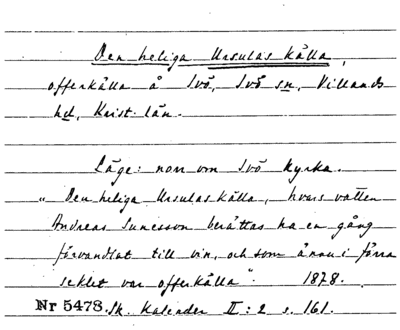 Den heliga Ursulas källa,
offerkälla å Ivö, Ivö sn, Villands
hd, Krist. län.
Läge: norr om Ivö kyrka.
"Den heliga Ursulas källa, hvars vatten
Andreas Sunesson berättas ha en gång
förvandlat till vin, och som ännu i förra
seklet var offerkälla". 1878.
Nr 5478. Sk. Kalender II: 2 s. 161.